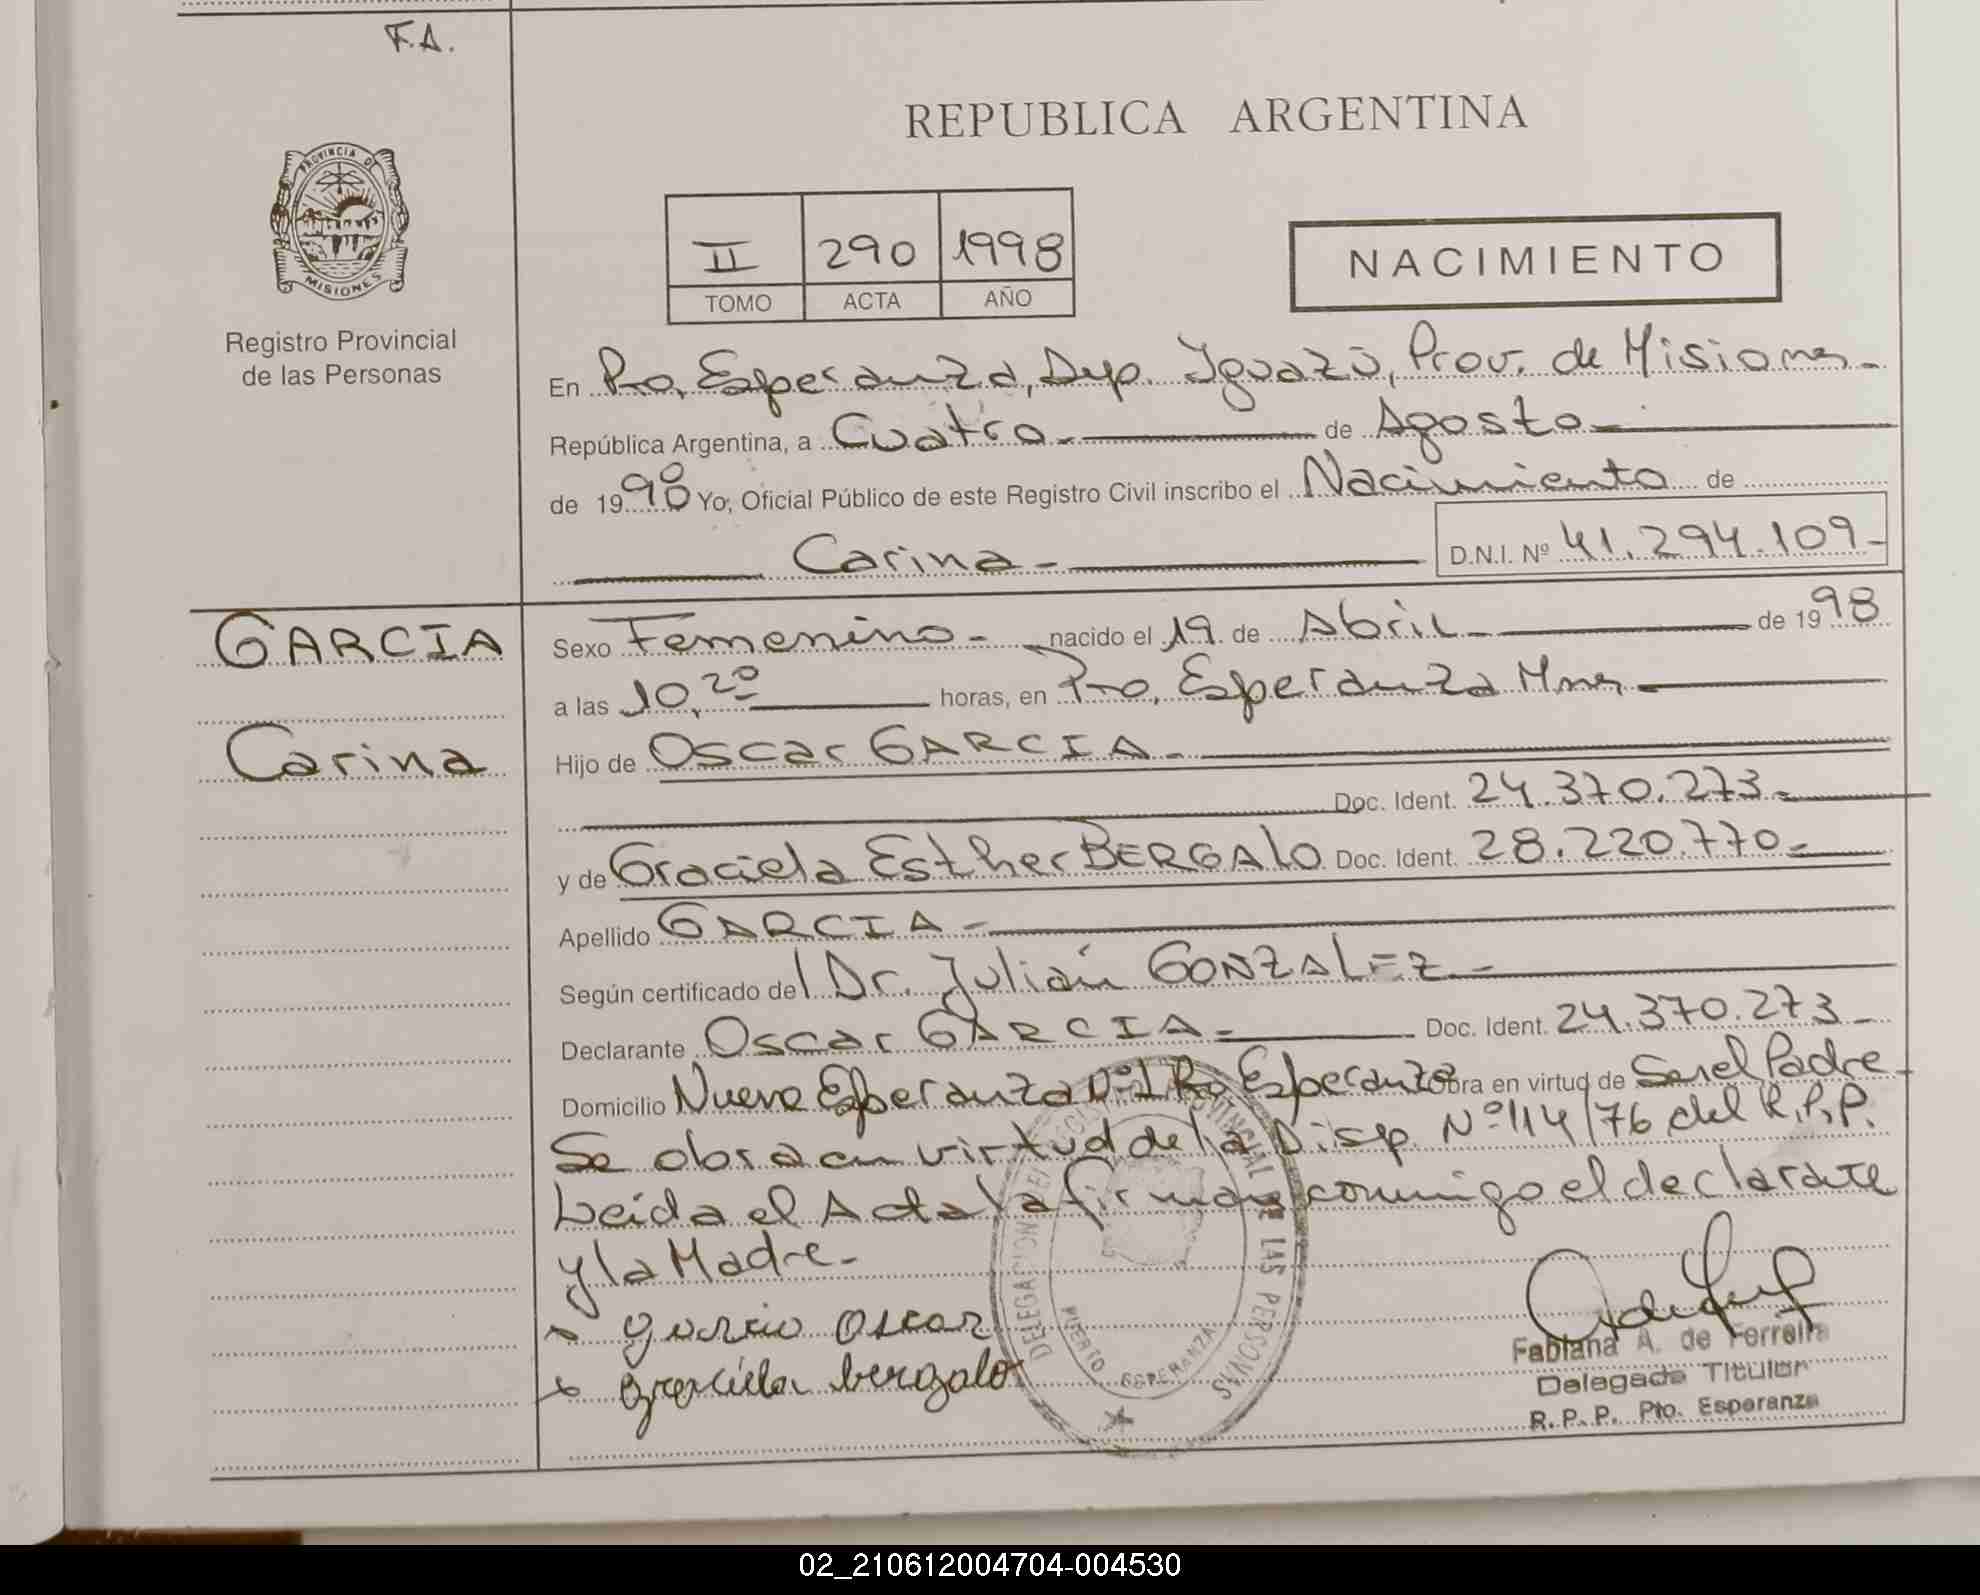 F.A.
REPUBLICA ARGENTINA
PROVINCIA DE
MISIONES
Registro Provincial
de las Personas
II 290 1998
TOMO ACTA AÑO
NACIMIENTO
En Pto. Esperanza, Dep. Iguazú, Prov. de Misiones
República Argentina, a Cuatro de Agosto
de 1998 Yo, Oficial Público de este Registro Civil inscribo el Nacimiento de
Carina D.N.I. Nº 41.294.109
GARCIA
Carina
Sexo Femenino nacido el 19 de Abril de 1998
a las 10,20 horas, en Pto. Esperanza Mnes
Hijo de Oscar GARCIA
Doc. Ident. 24.370.273
y de Graciela Esther BERGALO Doc. Ident. 28.220.770
Apellido GARCIA
Según certificado del Dr. Julián GONZALEZ
Declarante Oscar GARCIA Doc. Ident. 24.370.273
Domicilio Nueva Esperanza Nº1 Pto. Esperanza Obra en virtud de Ser el Padre
Se obra en virtud de la Disp. Nº 114/76 del R.P.P.
Leida el Acta la firman conmigo el declarate
y la Madre.
x garcia oscar
x graciela bergalo
DELEGACION REGISTRO PROVINCIAL DE LAS PERSONAS
PUERTO ESPERANZA
Fabiana A. de Ferreira
Delegada Titular
R.P.P. Pto. Esperanza
02_210612004704-004530